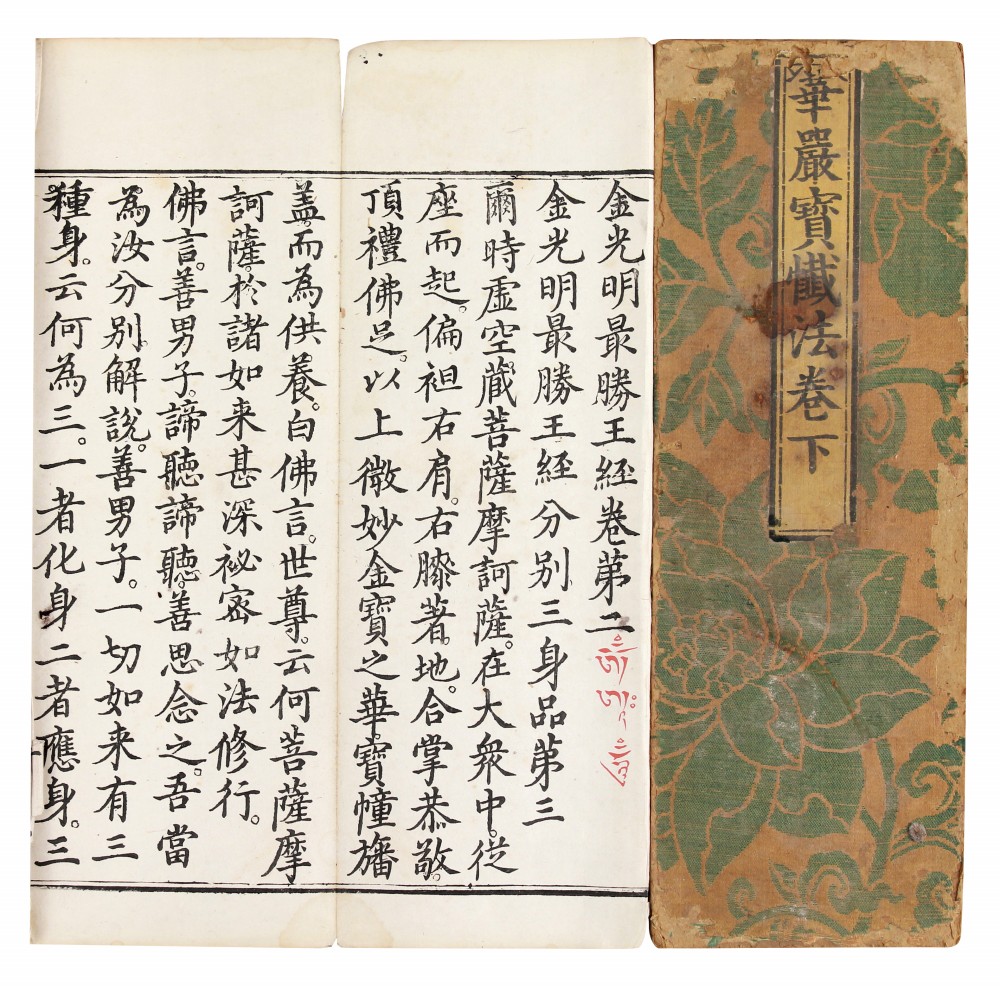 華嚴寶懺法卷下
金光明最勝王經卷苐二
金光明最勝王經分别三身品苐三
爾時虛空藏菩薩摩訶薩。在大衆中。從
座而起。偏袒右肩。右膝著地。合掌恭敬。
頂禮佛足。以上微妙金寶之華。寶幢旛
盖。而為供養。白佛言。世尊。云何菩薩摩
訶薩。於諸如来甚深祕密如法修行。
佛言。善男子。諦聽諦聽。善思念之。吾當
為汝分别。解說。善男子。一切如来有三
種身。云何為三。一者化身二者應身。三